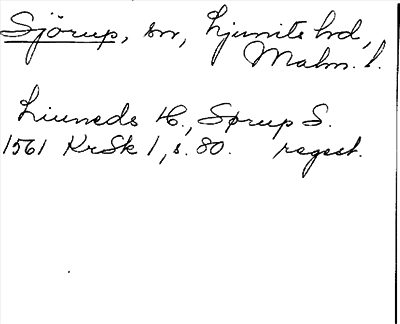 Sjörup, sn, Ljunits hd,
Malm. l.
Liuneds H., Sørup S.
1561 KrSk 1, s. 80. regest.